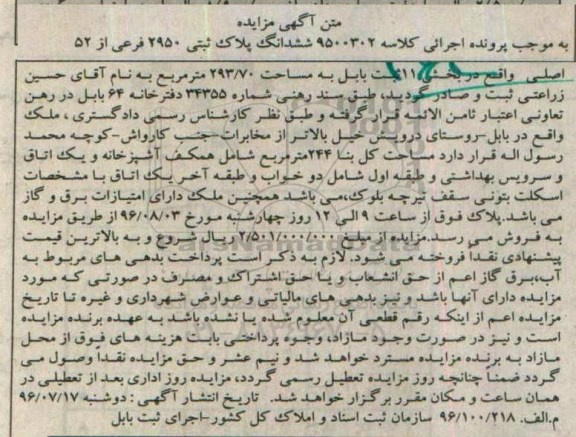 متن آگهی مزایده
به موجب پرونده اجرائی کلاسه ۹۵۰۰۳۰۲ ششدانگ پلاک ثبتی ۲۹۵۰ فرعی از ۵۲
اصلی واقع در بخش ۱۱ ثبت بابل به مساحت ۲۹۳/۷۰ مترمربع به نام آقای حسین
زراعتی ثبت و صادر گردید، طبق سند رهنی شماره ۳۴۳۵۵ دفترخانه ۶۴ بابل در رهن
تعاونی اعتبار ثامن الائمه قرار گرفته و طبق نظر کارشناس رسمی دادگستری ، ملک
واقع در بابل-روستای درویش خیل بالاتر از مخابرات-جنب کارواش-کوچه محمد
رسول اله قرار دارد مساحت کل بنا ۲۴۴مترمربع شامل همکف آشپزخانه و یک اتاق
و سرویس بهداشتی و طبقه اول شامل دو خواب و طبقه آخر یک اتاق با مشخصات
اسکلت بتونی سقف تیرچه بلوک،می باشد همچنین ملک دارای امتیازات برق و گاز
می باشد.پلاک فوق از ساعت ۹ الی ۱۲ روز چهارشنبه مورخ ۹۶/۰۸/۰۳ از طریق مزایده
به فروش می رسد.مزایده از مبلغ ۲/۵۰۱/۰۰۰/۰۰۰ریال شروع و به بالاترین قیمت
پیشنهادی نقداً فروخته می شود. لازم به ذکر است پرداخت بدهی های مربوط به
آب،برق گاز اعم از حق انشعاب و یا حق اشتراک و مصرف در صورتی که مورد
مزایده دارای آنها باشد و نیز بدهی های مالیاتی و عوارض شهرداری و غیره تا تاریخ
مزایده اعم از اینکه رقم قطعی آن معلوم شده یا نشده باشد به عهده برنده مزایده
است و نیز در صورت وجود مازاد، وجوه پرداختی بابت هزینه های فوق از محل
مازاد به برنده مزایده مسترد خواهد شد و نیم عشر و حق مزایده نقداً وصول می
گردد ضمناً چنانچه روز مزایده تعطیل رسمی گردد، مزایده روز اداری بعد از تعطیلی در
همان ساعت و مکان مقرر برگزار خواهد شد. تاریخ انتشار آگهی : دوشنبه ۹۶/۰۷/۱۷
م.الف. ۹۶/۱۰۰/۲۱۸ سازمان ثبت اسناد و املاک کل کشور-اجرای ثبت بابل